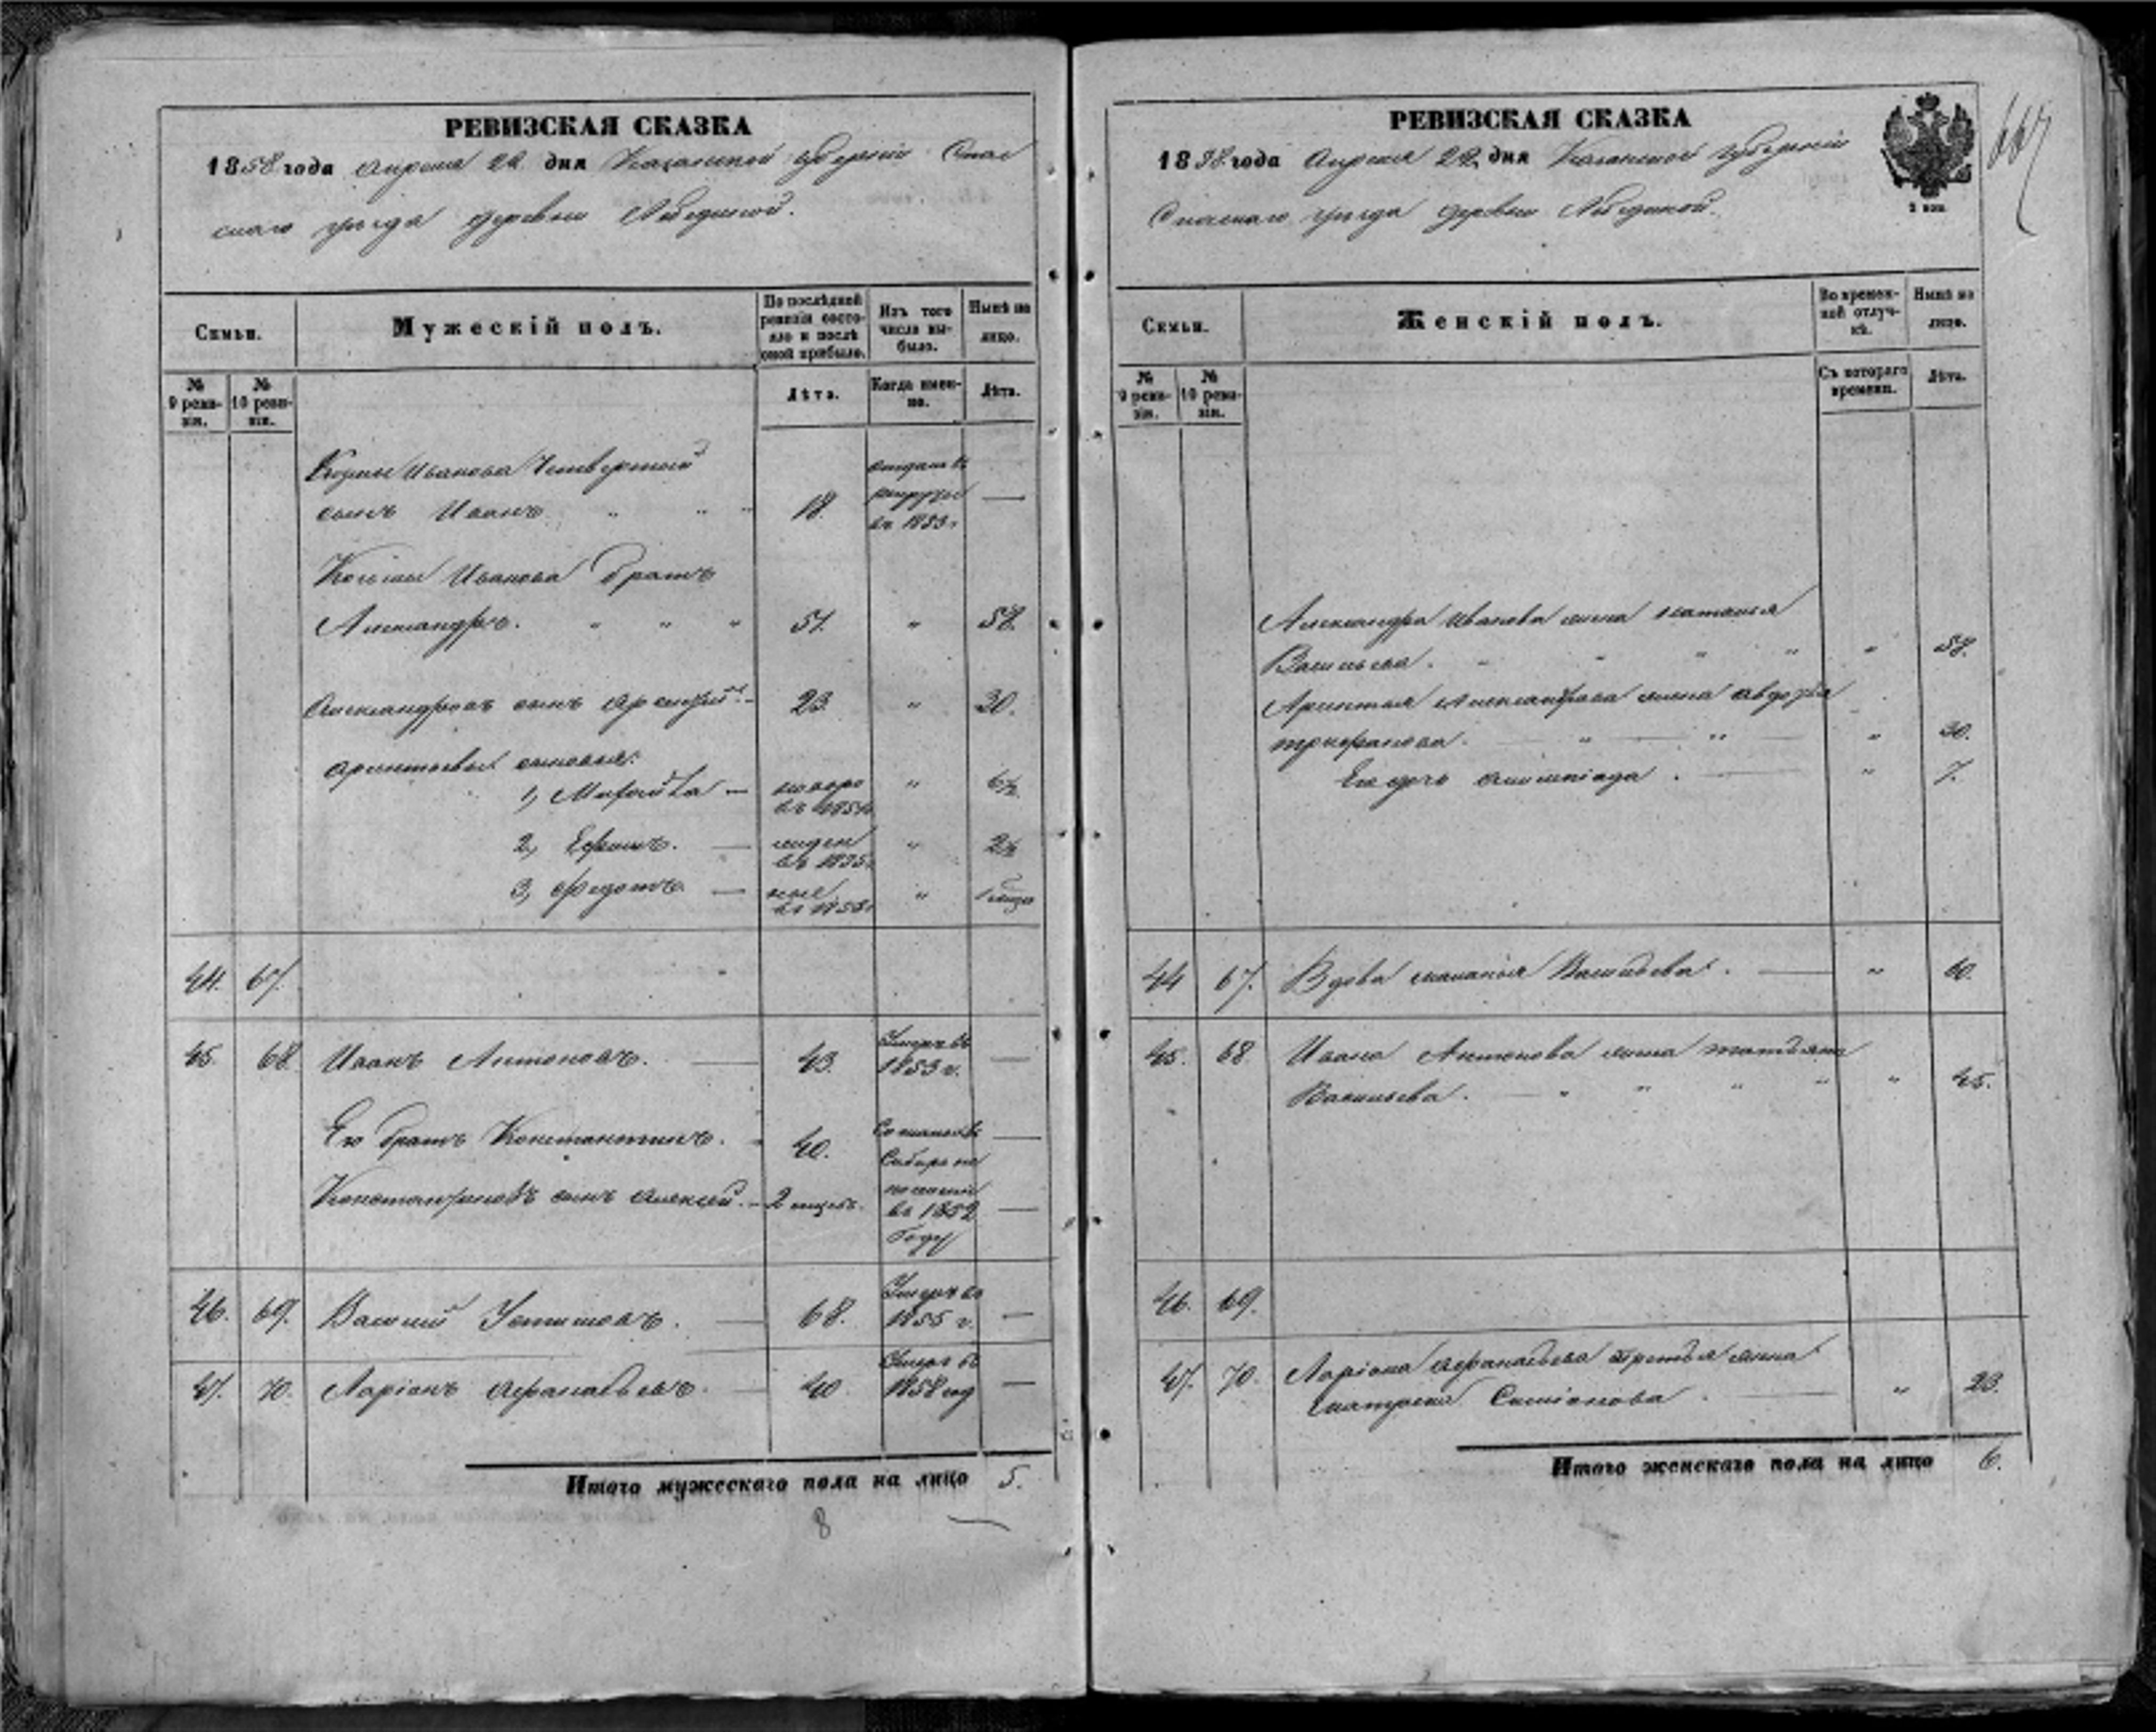 РЕВИЗСКАЯ СКАЗКА
1858 года Апреля 22 дня Казанской губернии Спас
скаго уезда деревни Лебединой.
Семьи.
Мужескій полъ.
По послѣдней ревизіи состояло и послѣ оной прибыло.
Изъ того числа выбыло.
Нынѣ на лицо.
№ 9 ревизіи.
№ 10 ревизіи.
Лѣта.
Когда именно.
Лѣта.
Иванова Четвертый
сынъ Иванъ 18. отданъ въ рекруты въ 1853 г. —
Иванова братъ
Александръ. 51. " 58.
Александровъ сынъ 23 " 30.
сыновья:
1, — " 6½
2, Ефимъ. — " 2½
3, Федотъ. — "
44. 67.
45. 68. Иванъ Антоновъ. — 43. Умеръ въ 1853 г. —
Его братъ Константинъ. 40. —
Константиновъ сынъ Алексей. — 2 Сибирь на въ 1852 году —
46. 69. Василий Устиновъ. — 68. Умеръ въ 1855 г. —
47. 70. Ларіонъ Афанасьевъ. — 40. Умеръ въ 1858 год —
Итого мужескаго пола на лицо 5.
8
РЕВИЗСКАЯ СКАЗКА
1858 года Апреля 22 дня Казанской губерніи
Спаскаго уезда деревни Лебединой.
2 коп.
Семьи.
Женскій полъ.
Во временной отлучкѣ.
Нынѣ на лицо.
№ 9 ревизіи.
№ 10 ревизіи.
Съ котораго времени.
Лѣта.
Александра Иванова жена Наталья
Васильева. " 58.
Александрова жена Авдотья
Трифанова. " 30.
Ея дочь Олимпіада. " 7.
44 67. Вдова Маланья Васильева. — " 60.
45. 68 Ивана Антонова жена Татьяна
Васильева. — " 45.
46. 69.
47. 70. Ларіона Афанасьева третья жена
Симіонова. — " 23.
Итого женскаго пола на лицо 6.